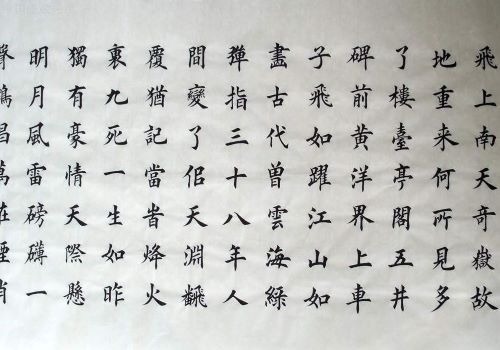 飛上南天奇嶽故
地重来何所見多
了樓臺亭閣五井
碑前黄洋界上車
子飛如躍江山如
畵古代曾雲海緑
彈指三十八年人
間變了佀天淵飜
覆猶記當旹烽火
裏九死一生如昨
獨有豪情天際懸
明月風雷磅礴一
聲萬